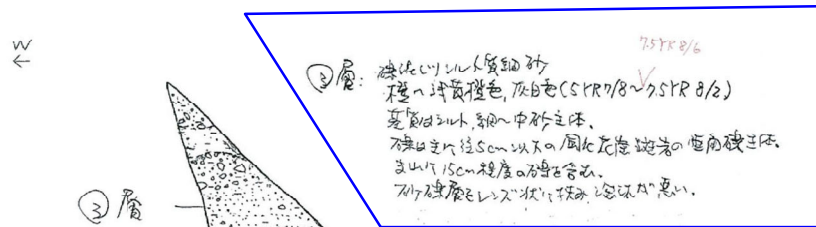 W
←
7.5YR 8/6
③層: 礫混じりシルト質細砂
橙〜浅黄橙色, 灰白色 (5YR7/8〜7.5YR 8/2)
基質はシルト, 細〜中砂主体。
礫は主に径5cm以下の風化花崗斑岩の亜角礫主体。
まれに15cm程度の礫を含む。
礫層をレンズ状に挟み, 淘汰が悪い。
③層